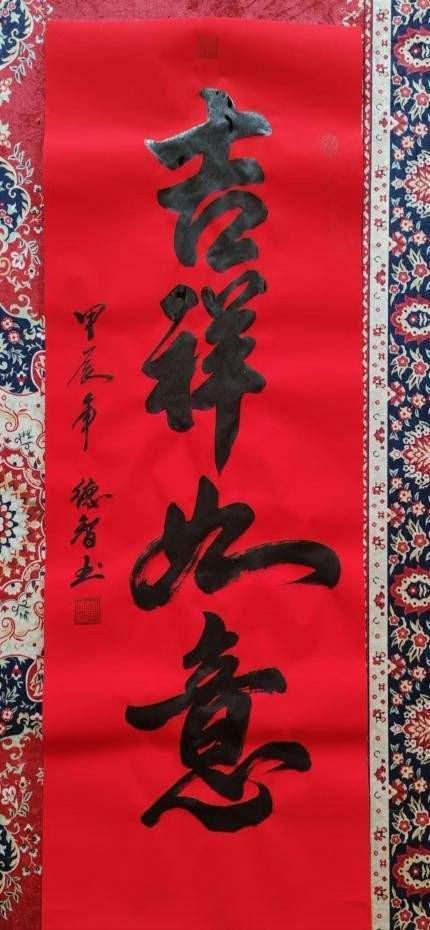 吉祥如意
甲辰年 德智书